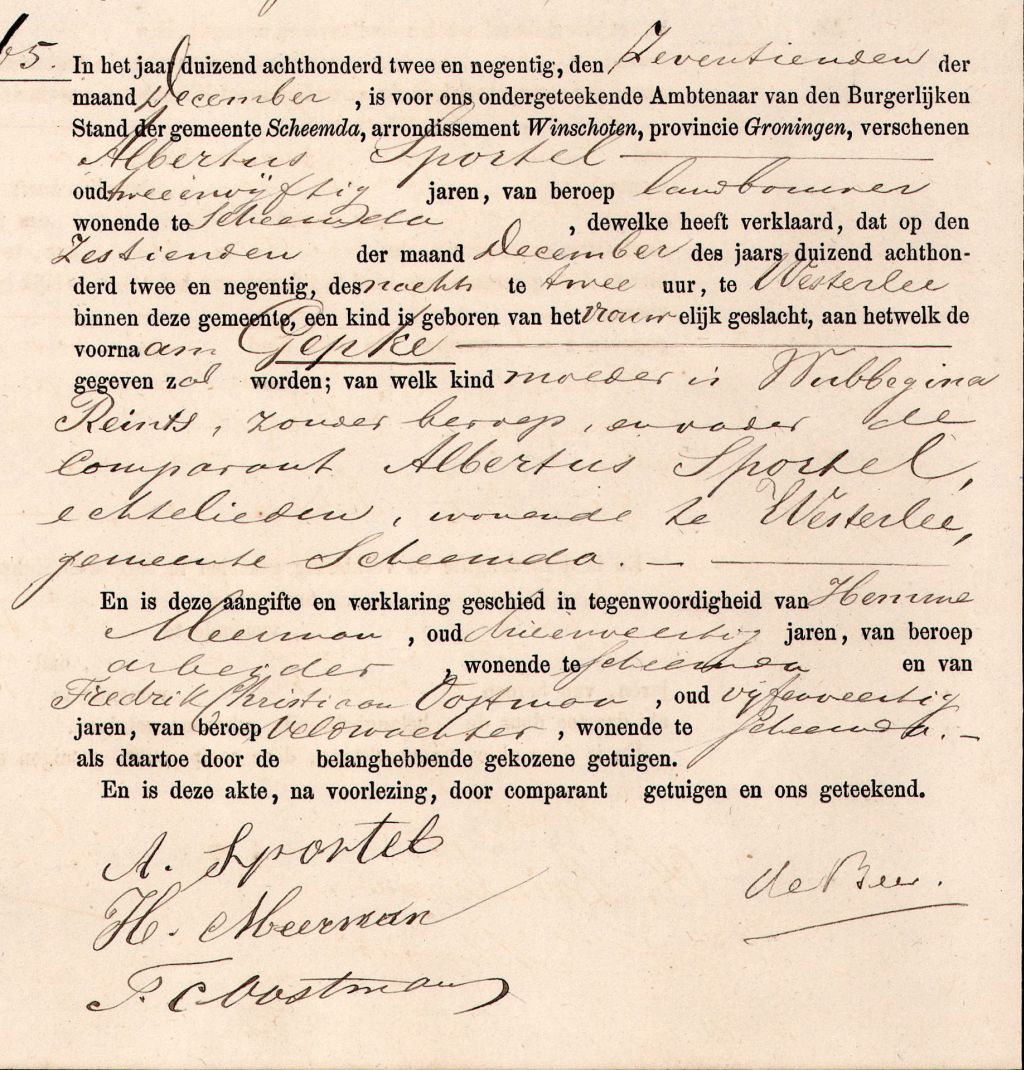 65.
In het jaar duizend achthonderd twee en negentig, den Zeventienden der
maand December, is voor ons ondergeteekende Ambtenaar van den Burgerlijken
Stand der gemeente Scheemda, arrondissement Winschoten, provincie Groningen, verschenen
Albertus Sportel
oud tweeenvijftig jaren, van beroep landbouwer
wonende te Scheemda, dewelke heeft verklaard, dat op den
Zestienden der maand December des jaars duizend achthon-
derd twee en negentig, des nachts te twee uur, te Westerlee
binnen deze gemeente, een kind is geboren van het vrouwelijk geslacht, aan hetwelk de
voornaam Gepke
gegeven zal worden; van welk kind moeder is Wubbegina
Reints, zonder beroep, en vader de
Comparant Albertus Sportel,
echtelieden, wonende te Westerlee,
gemeente Scheemda. —
En is deze aangifte en verklaring geschied in tegenwoordigheid van Hemme
Meerman, oud drieenveertig jaren, van beroep
arbeider, wonende te Scheemda en van
Fredrik Christiaan Oostman, oud vijfenveertig
jaren, van beroep Veldwachter, wonende te Scheemda. —
als daartoe door de belanghebbende gekozene getuigen.
En is deze akte, na voorlezing, door comparant getuigen en ons geteekend.
A. Sportel
de Beer.
H. Meerman
F. C Oostman